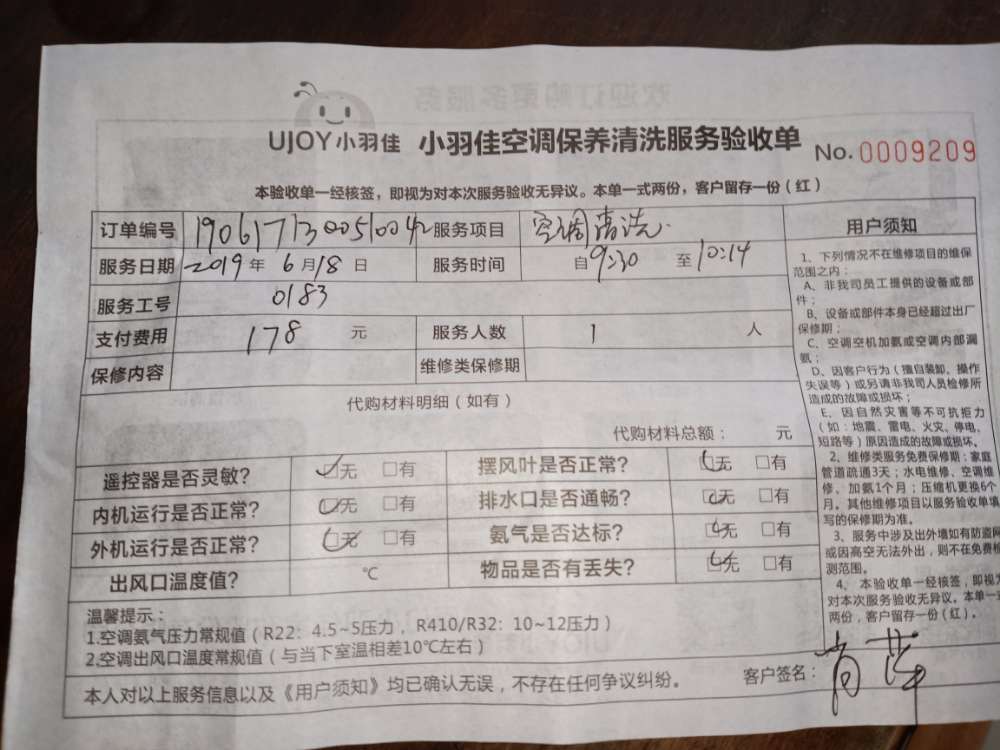 UJOY小羽佳 小羽佳空调保养清洗服务验收单 No.0009209
本验收单一经核签，即视为对本次服务验收无异议。本单一式两份，客户留存一份（红）
订单编号 190617130051004 服务项目 空调清洗
服务日期 2019 年 6 月 18 日 服务时间 自 9:30 至 10:14
服务工号 0183
支付费用 178 元 服务人数 1 人
保修内容 维修类保修期
代购材料明细（如有）
代购材料总额： 元
遥控器是否灵敏？ ☑无 □有 摆风叶是否正常？ ☑无 □有
内机运行是否正常？ ☑无 □有 排水口是否通畅？ ☑无 □有
外机运行是否正常？ ☑无 □有 氨气是否达标？ ☑无 □有
出风口温度值？ ℃ 物品是否有丢失？ ☑无 □有
温馨提示：
1.空调氨气压力常规值（R22：4.5~5压力，R410/R32：10~12压力）
2.空调出风口温度常规值（与当下室温相差10℃左右）
本人对以上服务信息以及《用户须知》均已确认无误，不存在任何争议纠纷。
客户签名：
用户须知
1、下列情况不在维修项目的维保
范围之内：
A、非我司员工提供的设备或部
件；
B、设备或部件本身已经超过出厂
保修期；
C、空调空机加氨或空调内部漏
氨；
D、因客户行为（擅自装卸、操作
失误等）或另请非我司人员检修所
造成的故障或损坏；
E、因自然灾害等不可抗拒力
（如：地震、雷电、火灾、停电、
短路等）原因造成的故障或损坏。
2、维修类服务免费保修期：家庭
管道疏通3天；水电维修、空调维
修、加氨1个月；压缩机更换6个
月。其他维修项目以服务验收单填
写的保修期为准。
3、服务中涉及出外墙如有防盗网
或因高空无法外出，则不在免费检
测范围。
4、本验收单一经核签，即视为
对本次服务验收无异议。本单一式
两份，客户留存一份（红）。